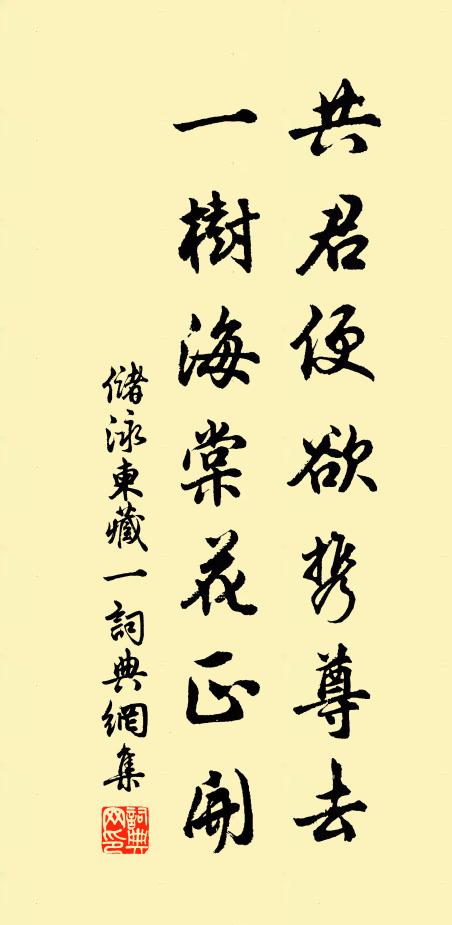 共君便欲携尊去
一樹海棠花正開
儲泳東藏一詞典網集
詞典网印